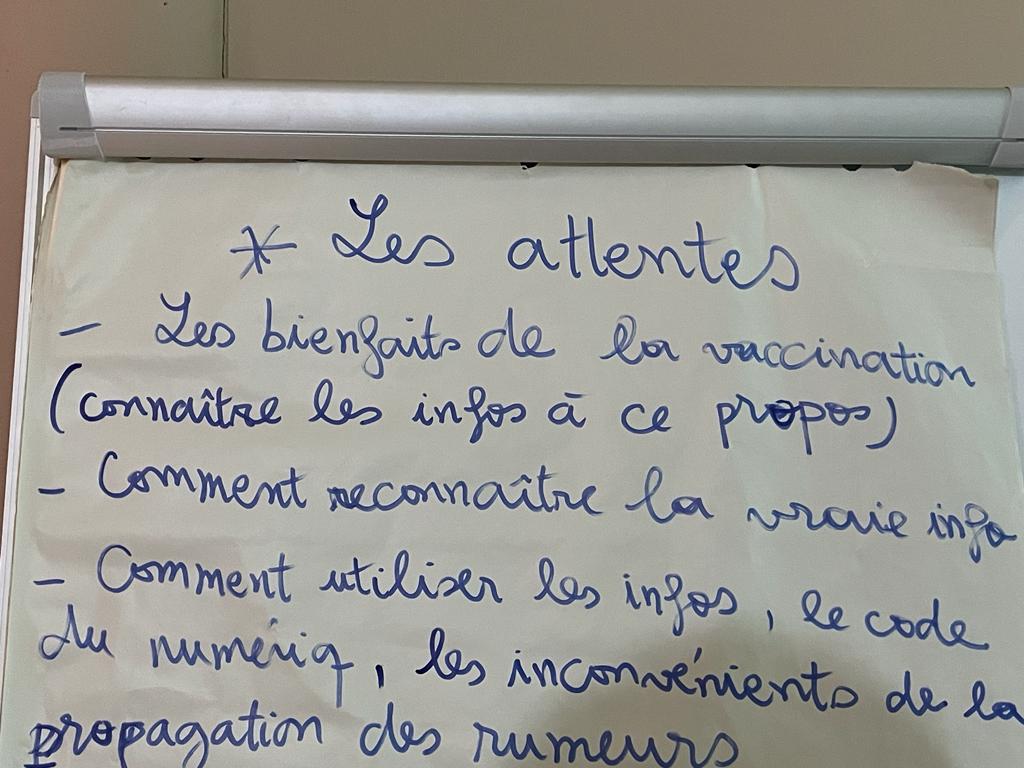 * Les attentes
- Les bienfaits de la vaccination
(connaître les infos à ce propos)
- Comment reconnaître la vraie info
- Comment utiliser les infos, le code
du numériq, les inconvénients de la
propagation des rumeurs